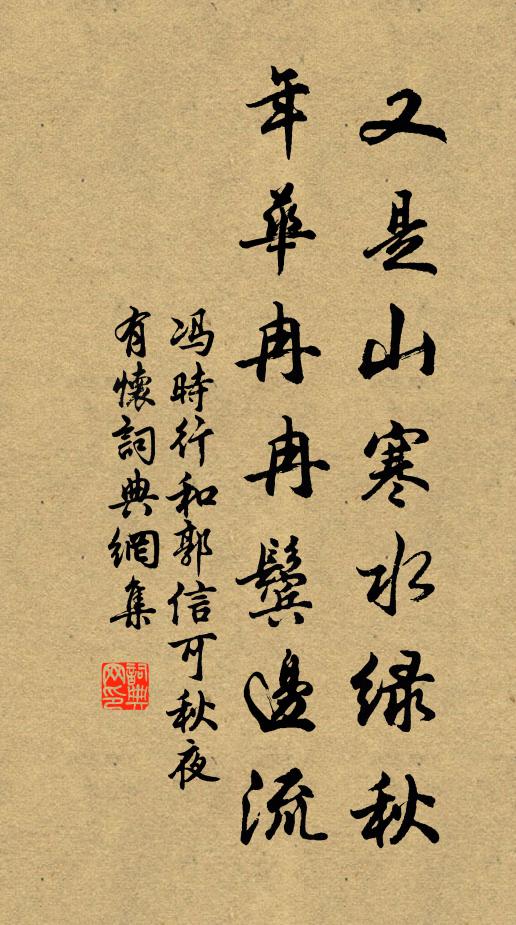 又是山寒水绿秋
年華冉冉鬓邊流
冯時行和郭信可秋夜
有懷詞典網集
詞典
网印